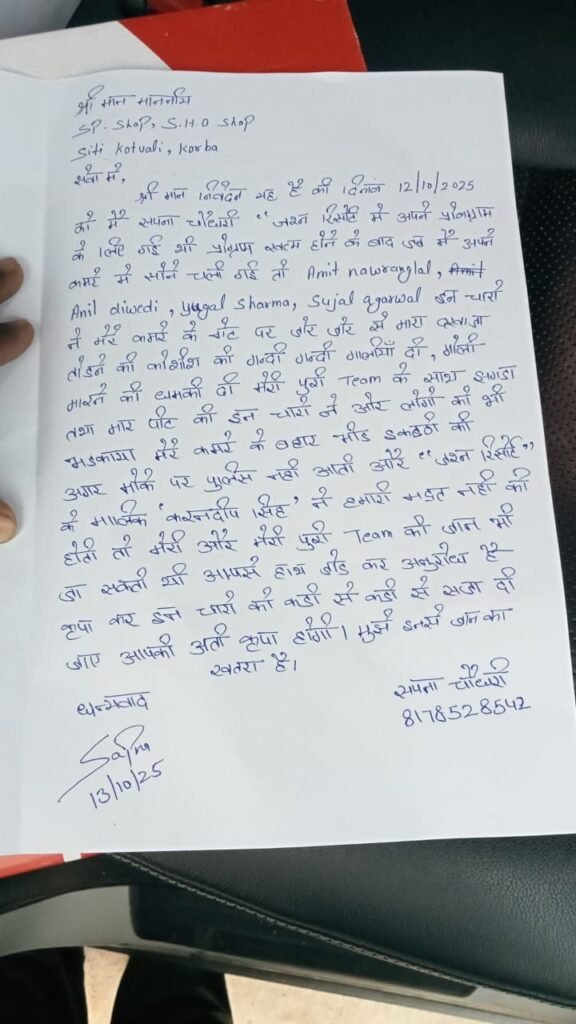 श्री मान माननीय
SP. Shap, S.H.O Shap
Siti Kotvali, Korba
सेवा में,
श्री मान निवेदन यह है की दिनांक 12/10/2025
को मैं सपना चौधरी "जश्न रिसोर्ट में अपने प्रोग्राम
के लिए गई थी प्रोग्राम खत्म होने के बाद जब मैं अपने
कमरे में सोने चली गई तो Amit nawranglal,
Anil diwedi, yugal sharma, Sujal agarwal इन चारों
ने मेरे कमरे के गेट पर जोर जोर से मारा दरवाजा
तोडने की कोशीश की गन्दी गन्दी गालीयाँ दी, गोली
मारने की धमकी दी मेरी पुरी Team के साथ झगडा
तथा मार पीट की इन चारों ने और लोगों को भी
भडकाया मेरे कमरे के बहार भीड इकठठी की
अगर मौके पर पुलिस नहीं आती और "जश्न रिसोर्ट"
के मालिक 'करनदीप सिंह' ने हमारी मदत नहीं की
होती तो मेरी और मेरी पुरी Team की जान भी
जा सकती थी आपसे हाथ जोड कर अनुरोध है
कृपा कर इन चारों को कडी से कडी से सजा दी
जाए आपकी अती कृपा होगी। मुझे इनसे जान का
खतरा है।
धन्यवाद
सपना चौधरी
8178528542
Sapna
13/10/25